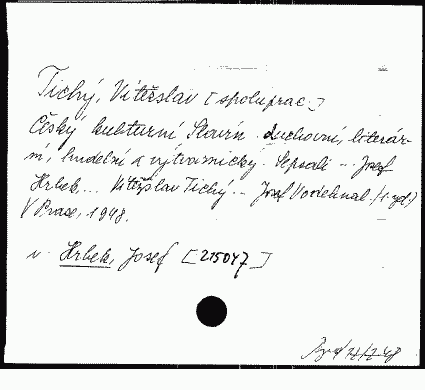 Tichý, Vítězslav [spoluprac.]
Český kulturní Slavín duchovní, literár-
ní, hudební a výtvarnický. Sepsali ... Josef
Hrbek ... Vítězslav Tichý ... Josef Vodehnal. (1. vyd.)
V Praze, 1948.
v. Hrbek, Josef [215047]